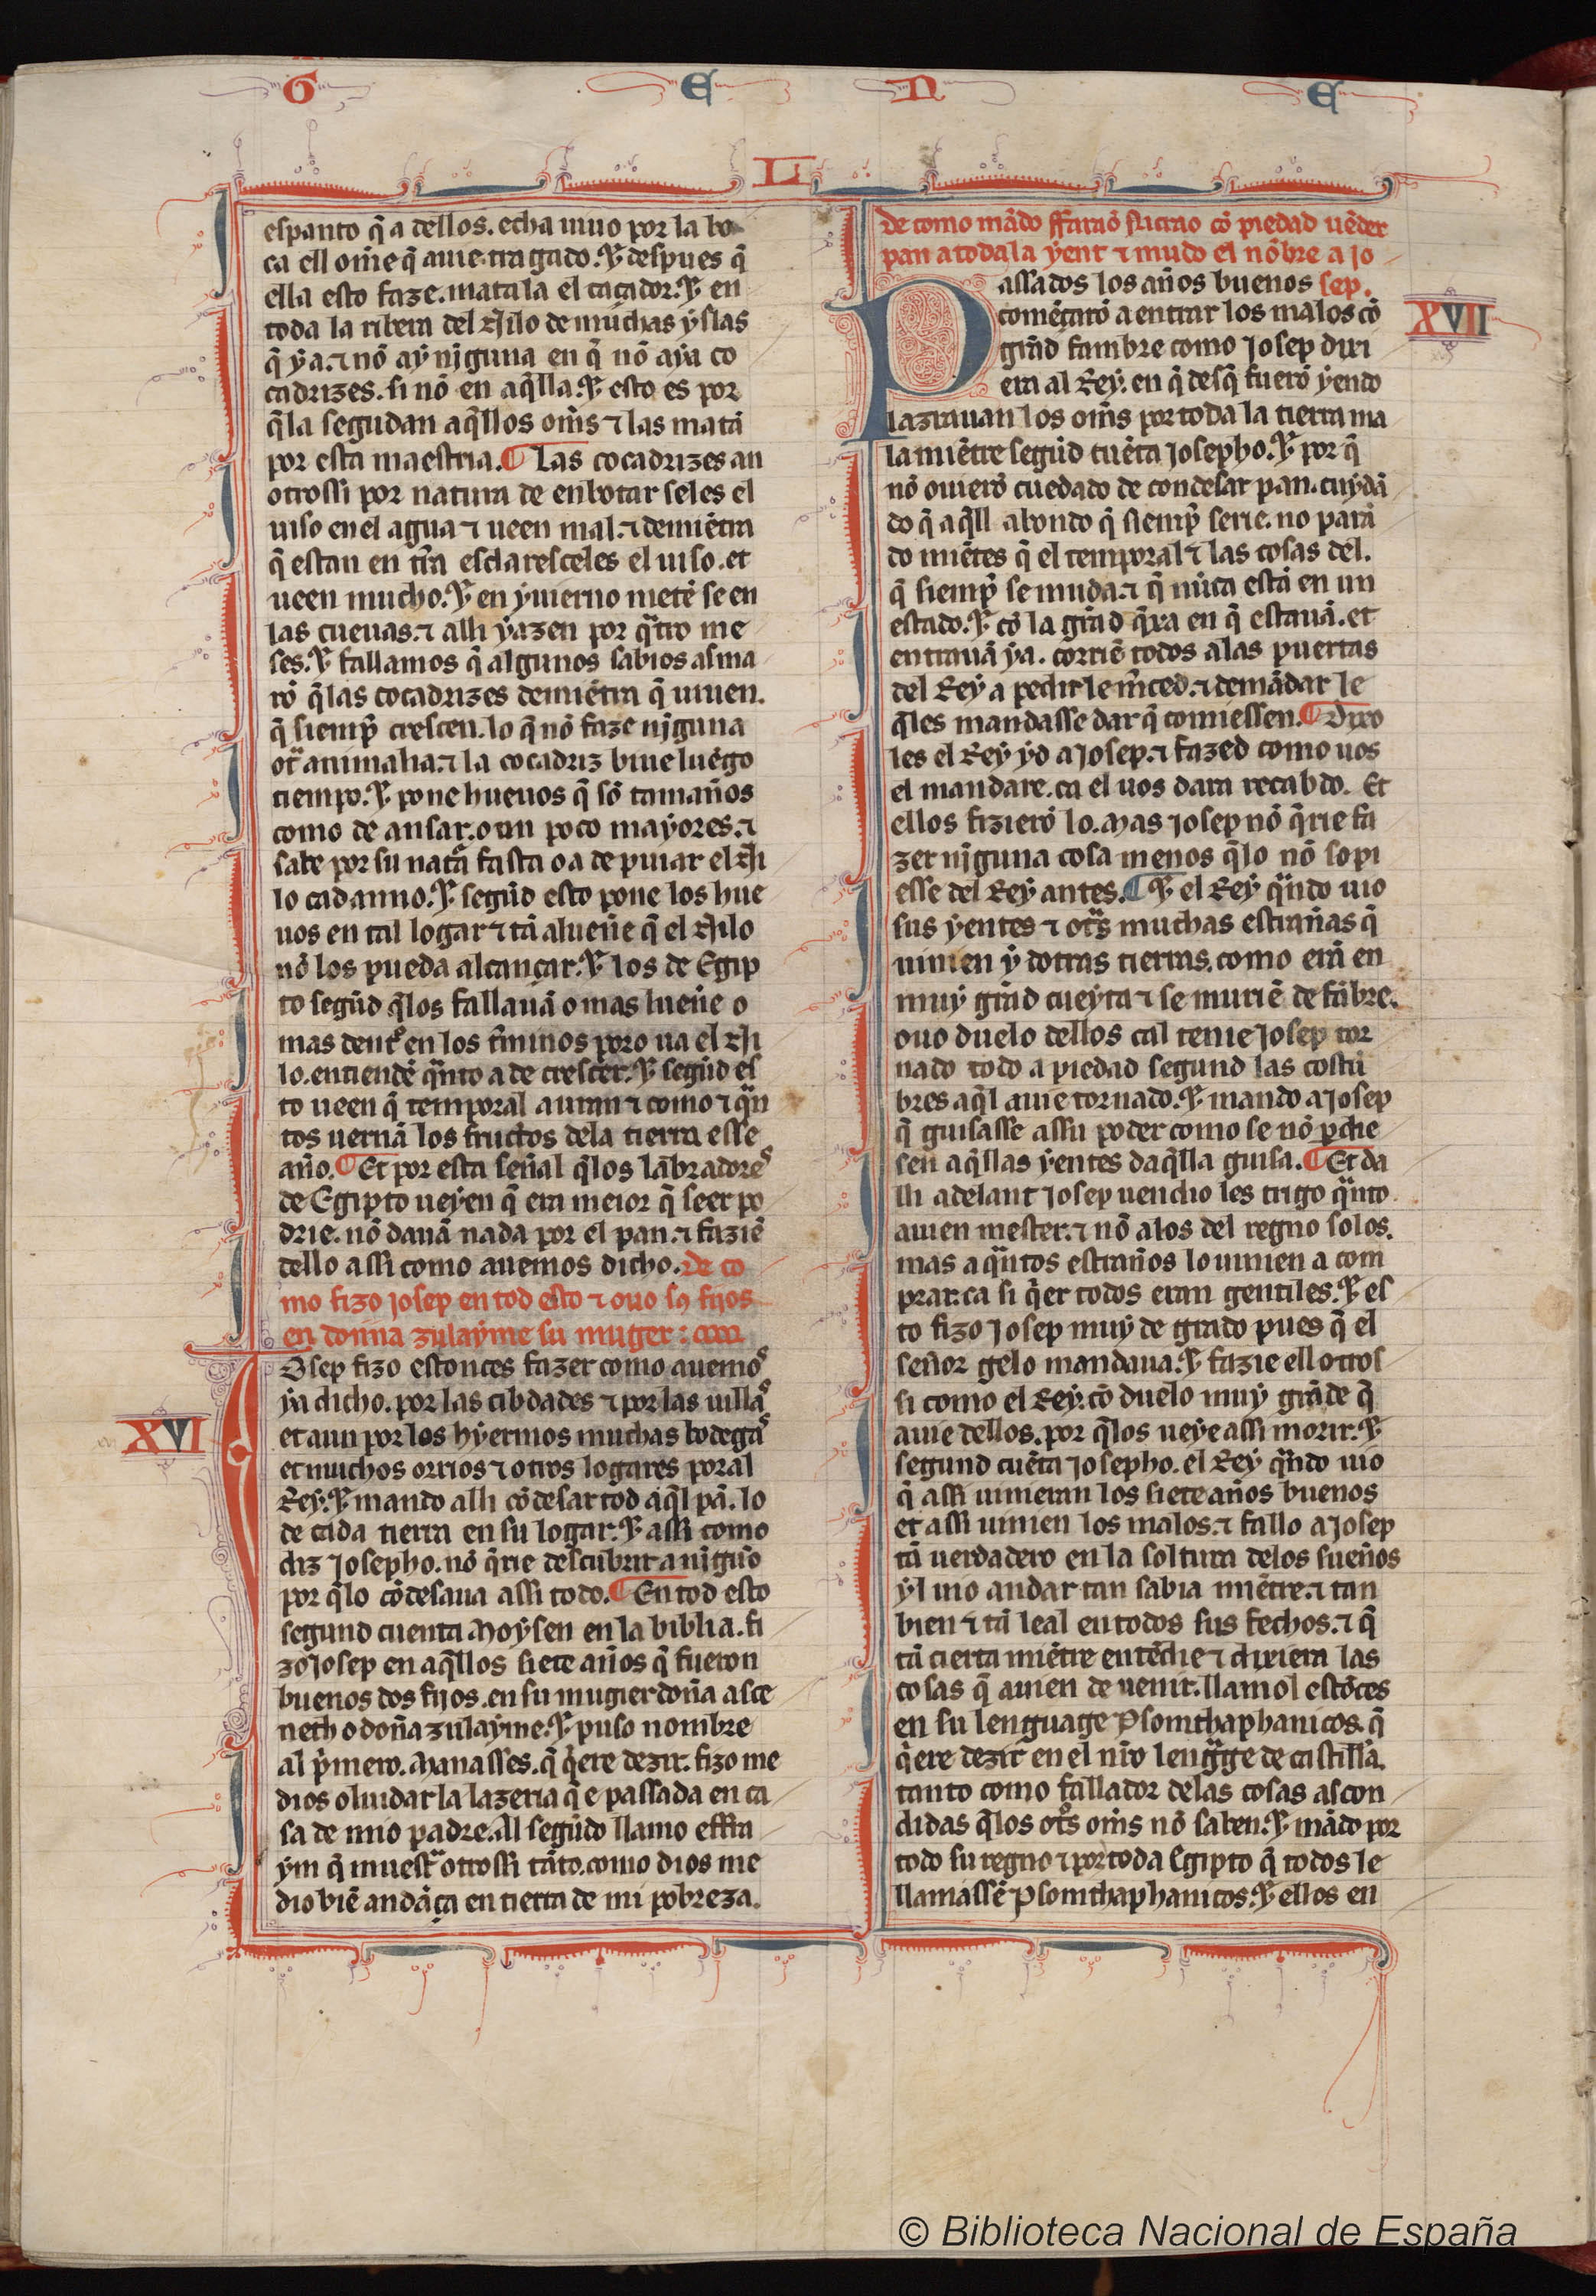 G E N E
L
espanto q̃ a dellos. echa uiuo por la bo
ca ell om̃e q̃ auie tragado. ⁊ despues q̃
ella esto faze. matala el caçador. ⁊ en
toda la ribera del Nilo de muchas yslas
q̃ y a. ⁊ nõ ay njguna en q̃ nõ aya co
cadrizes. si nõ en aq̃lla. ⁊ esto es por
q̃ la segudan aq̃llos om̃s ⁊ las matã
por esta maestria. ¶ Las cocadrizes an
otrossi por natura de enbotar seles el
uiso en el agua ⁊ ueen mal. ⁊ demiẽtra
q̃ estan en tr̃ra esclaresceles el uiso. et
ueen mucho. ⁊ en yuierno metẽ se en
las cueuas. ⁊ alli yazen por q̃tro me
ses. ⁊ fallamos q̃ algunos sabios asma
rõ q̃ las cocadrizes demiẽtra q̃ uiuen.
q̃ siemp̃ crescen. lo q̃ nõ faze njguna
otr̃ animalia. ⁊ la cocadriz biue luẽgo
tiempo. ⁊ pone hueuos q̃ sõ tamaños
como de ansar. o un poco mayores. ⁊
sabe por su natã fasta o a de puiar el Ni
lo cadanno. ⁊ segũd esto pone los hue
uos en tal logar ⁊ tã alueñe q̃ el Nilo
nõ los pueda alcançar. ⁊ los de Egip
to segũd q̃ los fallauã o mas lueñe o
mas dentr̃o en los t̃minos poro ua el Ni
lo. entiendẽ q̃nto a de crescer. ⁊ segũd es
to ueen q̃ temporal auran ⁊ como ⁊ q̃n
tos uernã los fructos dela tierra esse
año. ¶ Et por esta señal q̃ los labradores
de Egipto ueyen q̃ era meior q̃ seer po
drie. nõ dauã nada por el pan. ⁊ faziẽ
dello assi como auemos dicho. De co
mo fizo josep en tod esto ⁊ ouo sꝯ fijos
en donna zulayme su muger:
XVI
Josep fizo estonces fazer como auemos
ya dicho. por las cibdades ⁊ por las uillas
et aun por los hyermos muchas bodegas
et muchos orrios ⁊ otros logares poral
Rey. ⁊ mando alli cõdesar tod aq̃l pã. lo
de cada tierra en su logar. ⁊ assi como
diz Josepho. nõ q̃rie descubrir a nigũo
por q̃ lo cõdesaua assi todo. ¶ En tod esto
segund cuenta Moysen en la biblia. fi
zo Josep en aq̃llos siete años q̃ fueron
buenos dos fijos. en su mugier doña asce
neth o doña zulayme. ⁊ puso nombre
al p̃mero. Manasses. q̃ q̃ere dezir. fizo me
dios oluidar la lazeria q̃ e passada en ca
sa de mio padre. Al segũdo llamo effra
ym q̃ muestr̃ otrossi tãto. como dios me
dio biẽ andãça en tierra de mi pobreza.
de como mãdo ffaraõ Nicrao cõ piedad uẽder
pan a toda la yent ⁊ mudo el nõbre a jo
sep.
XVII
Passados los años buenos
comẽçarõ a entrar los malos cõ
grãd fambre como Josep dixi
era al Rey. en q̃ desq̃ fuerõ yendo
lazrauan los om̃s por toda la tierra ma
la miẽtre segũd cuẽta Josepho. ⁊ por q̃
nõ ouierõ cuedado de condesar pan. cuydã
do q̃ aq̃ll abondo q̃ siemp̃ serie. no parã
do miẽtes q̃ el temporal ⁊ las cosas del.
q̃ siemp̃ se muda. ⁊ q̃ nũca estã en un
estado. ⁊ cõ la grãd q̃xa en q̃ estauã. et
entrauã ya. corriẽ todos alas puertas
del Rey a pedir le m̃ced. ⁊ demãdar le
q̃ les mandasse dar q̃ comiessen. ¶ Dixo
les el Rey yd a Josep. ⁊ fazed como uos
el mandare. ca el uos dara recabdo. Et
ellos fizierõ lo. Mas Josep nõ q̃rie fa
zer njguna cosa menos q̃ lo nõ sopi
esse del Rey antes. ¶ ⁊ el Rey q̃ndo uio
sus yentes ⁊ otr̃s muchas estrañas q̃
uinien y dotras tierras. como erã en
muy grãd cueyta ⁊ se muriẽ de fãbre.
ouo duelo dellos cal tenie Josep tor
nado todo a piedad segund las costũ
bres aq̃l auie tornado. ⁊ mando a Josep
q̃ guisasse assu poder como se nõ p̃die
sen aq̃llas yentes daq̃lla guisa. ¶ Et da
lli adelant Josep uendio les trigo q̃nto
auien mester. ⁊ nõ alos del regno solos.
mas a q̃ntos estraños lo uinien a com
prar. ca si q̃er todos eran gentiles. ⁊ es
to fizo Josep muy de grado pues q̃ el
señor gelo mandaua. ⁊ fazie ell otros
si como el Rey. cõ duelo muy grãde q̃
auie dellos. por q̃ los ueye assi morir. ⁊
segund cuẽta Josepho. el Rey q̃ndo uio
q̃ assi uinieran los siete años buenos
et assi uinien los malos. ⁊ fallo a Josep
tã uerdadero en la soltura delos sueños
yl uio andar tan sabia miẽtre. ⁊ tan
bien ⁊ tã leal en todos sus fechos. ⁊ q̃
tã cierta miẽtre entẽdie ⁊ dixiera las
cosas q̃ auien de uenir. llamol estõces
en su lenguage Psomthaphanicos. q̃
q̃ere dezir en el nr̃o leng̃ge de castilla.
tanto como fallador delas cosas ascon
didas q̃ los otr̃s om̃s nõ saben. ⁊ mãdo por
todo su regno ⁊ por toda Egipto q̃ todos le
llamassẽ Psomthaphanicos. ⁊ ellos en
© Biblioteca Nacional de España